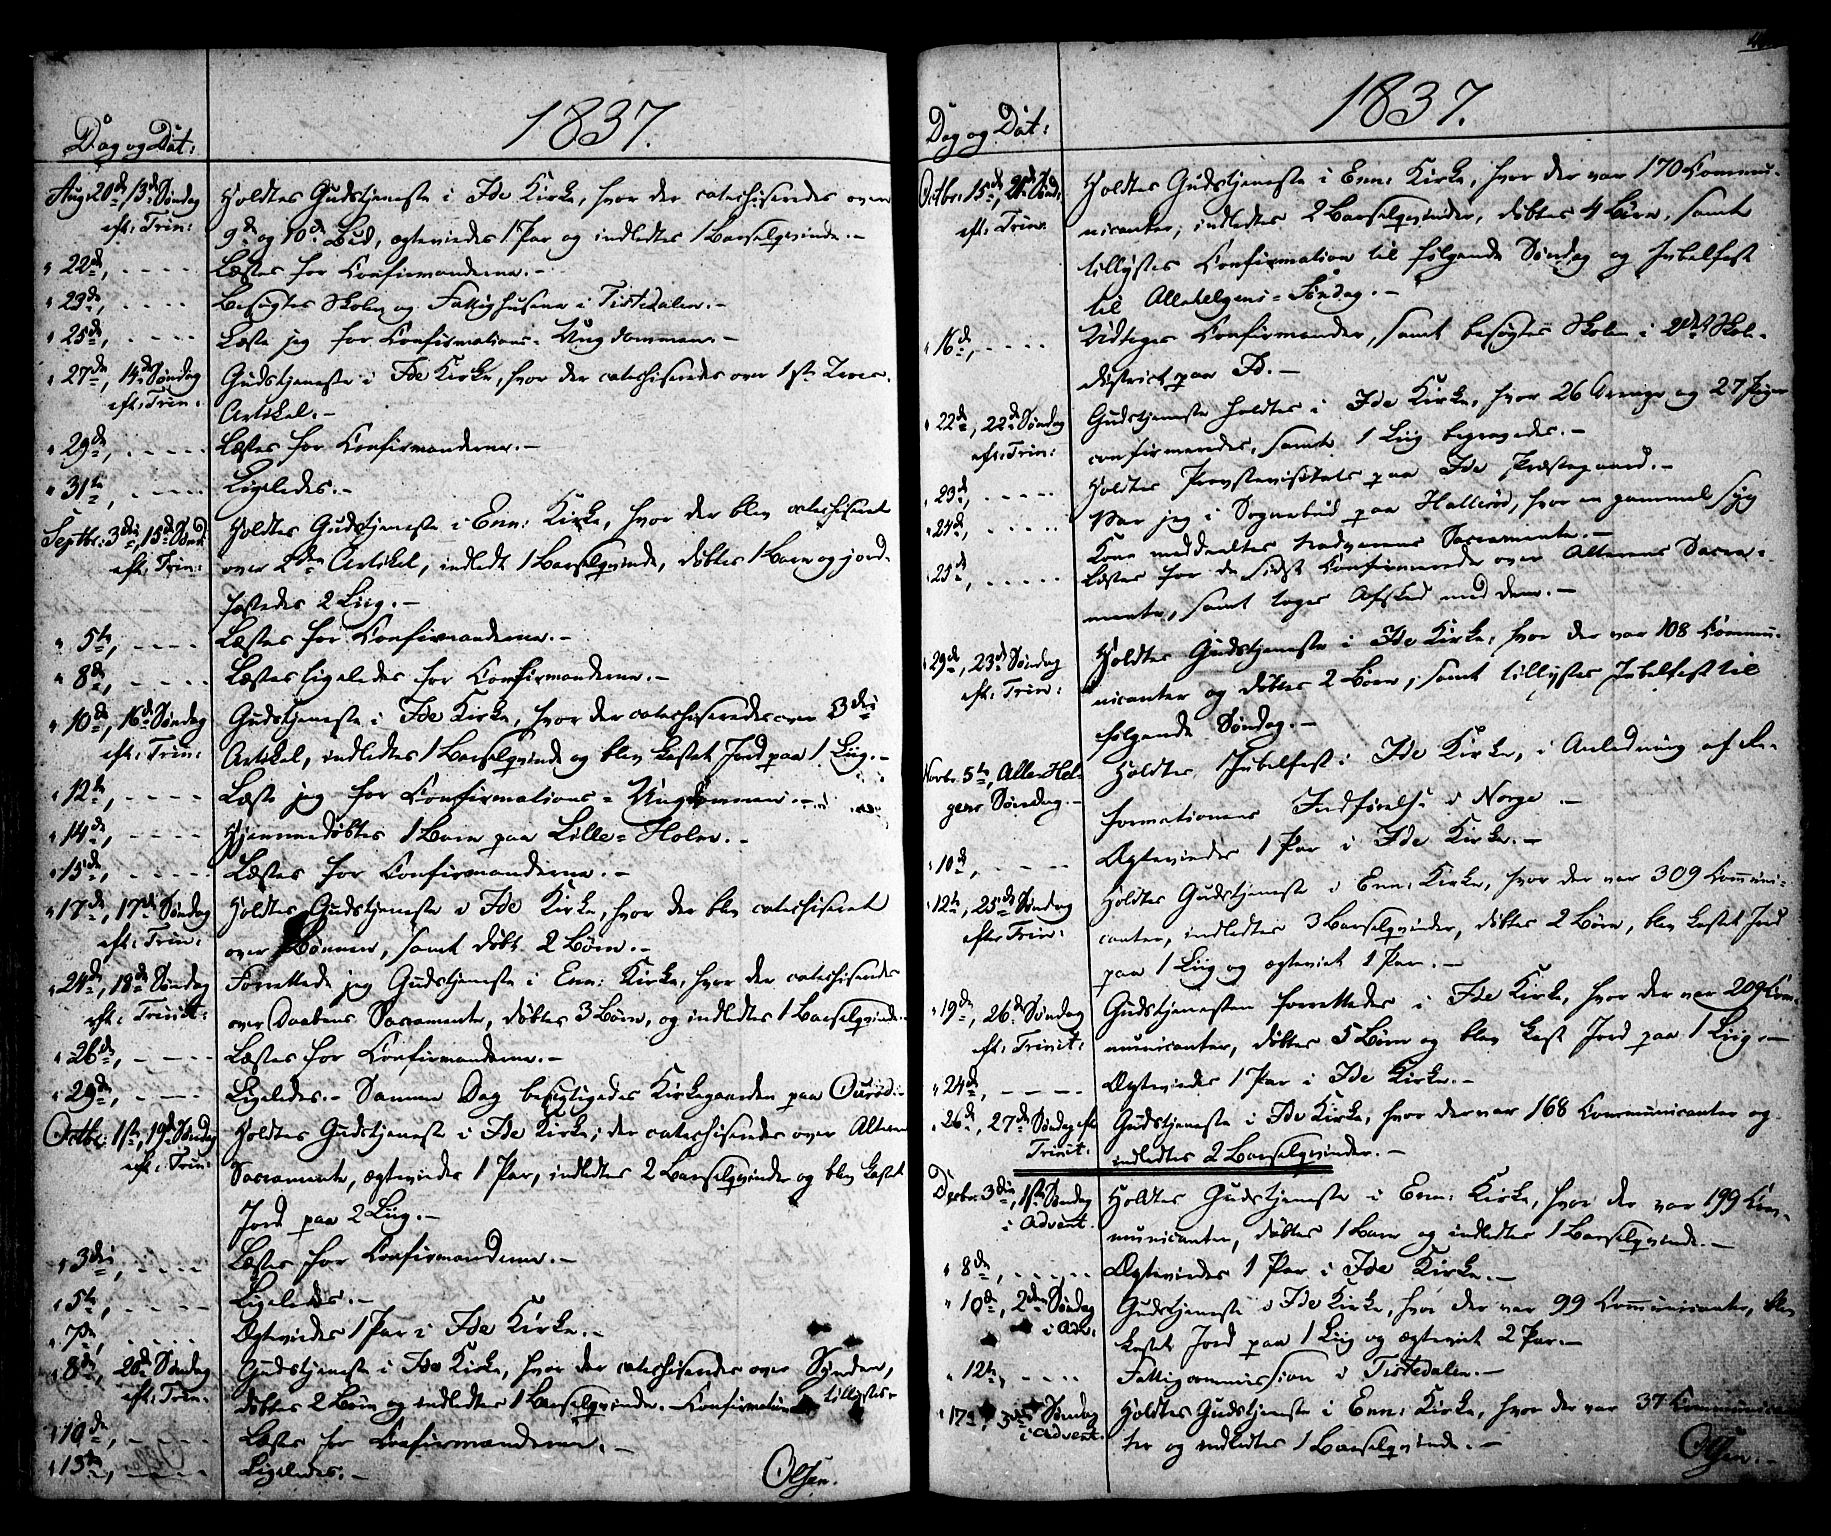 1837.
Dag og Dat:
Aug. 20de, 13de Søndag eft: Trin: Holdtes Gudstjeneste i Ide Kirke, hvor der catechiseredes over
9de og 10de Bud, ægteviedes 1 Par og indledtes 1 Barselqvinde. -
" 22de, - - - - Læstes for Confirmanderne. -
" 23de, - - - - Besøgtes Skolen og Fattighusene i Tistedalen. -
" 25de, - - - - Læste jeg for Confirmations-Ungdommen. -
" 27de, 14de Søndag eft: Trin: Gudstjeneste i Ide Kirke, hvor der catechiseredes over 1ste Troes-
Artikel. -
" 29de, - - - - Læstes for Confirmanderne. -
" 31te, - - - - Ligeledes. -
Septbr: 3die, 15de Sønd: eft: Trin: Holdtes Gudstjeneste i Enn: Kirke, hvor der blev catechiseret
over 2den Artikel, indledt 1 Barselqvinde, døbtes 1 Barn og jord-
fæstedes 2 Liig. -
" 5te, - - - - Læstes for Confirmanderne. -
" 8de, - - - - Læstes ligeledes for Confirmanderne. -
" 10de, 16de Søndag eft: Trin: Gudstjeneste i Ide Kirke, hvor der catechiseredes over 3die
Artikel, indledtes 1 Barselqvinde og blev kastet Jord paa 1 Liig. -
" 12te, - - - - Læste jeg for Confirmations-Ungdommen. -
" 14de, - - - - Hjemmedøbtes 1 Barn paa Lille-Holm. -
" 15de, - - - - Læstes for Confirmanderne. -
" 17de, 17de Søndag eft: Trin: Holdtes Gudstjeneste i Ide Kirke, hvor der blev catechiseret
over Bønnen, samt døbt 2 Børn. -
" 24de, 18de Søndag eft: Trinit: Forrettede jeg Gudstjeneste i Enn: Kirke, hvor der catechiseredes
over Daabens Sacramente, døbtes 3 Børn, og indledtes 1 Barselqvinde. -
" 26de, - - - - Læstes for Confirmanderne. -
" 29de, - - - - Ligeledes. - Samme Dag besigtigedes Kirkegaarden paa
Octbr: 1ste, 19de Søndag eft: Trin: Holdtes Gudstjeneste i Ide Kirke; der catechiseredes over Alterens
Sacramente, ægteviedes 1 Par, indledtes 2 Barselqvinder og blev kastet
Jord paa 2 Liig. -
" 3die, - - - - Læstes for Confirmanderne. -
" 5te, - - - - Ligeledes. -
" 7de, - - - - Ægteviedes 1 Par i Ide Kirke. -
" 8de, 20de Søndag eft: Trin: Gudstjeneste i Ide Kirke, hvor der catechiseredes over Synden,
døbtes 2 Børn og indledtes 1 Barselqvinde. - Confirmation tillystes -
" 10de, - - - - Læstes for Confirmanderne. -
" 13de, - - - - Ligeledes. -
Olsen.
1837.
Dag og Dat:
Octbr: 15de, 21de Sønd: eft: Trin: Holdtes Gudstjeneste i Enn: Kirke, hvor der var 170 Commu-
nicanter, indledtes 2 Barselqvinder, døbtes 4 Børn, samt
tillystes Confirmation til følgende Søndag og Jubelfest
til Allehelgens-Søndag. -
" 16de, - - - - Confirmander, samt besøgtes Skolen i 2det Skol-
district paa Id. -
" 22de, 22de Søndag eft: Trin: Gudstjeneste holdtes i Ide Kirke, hvor 26 Drenge og 27 Piger
confirmeredes, samt 1 Liig begravedes. -
" 23de, - - - - Holdtes Provstevisitats paa Ide Præstegaard. -
" 24de, - - - - Var jeg i Sognebud paa Hallerød, hvor en gammel syg
Kone meddeeltes Nadverens Sacramente. -
" 25de, - - - - Læstes for de sidst Confirmerede over Alterens Sacra-
mente, samt toges Afsked med dem. -
" 29de, 23de Søndag eft: Trin: Holdtes Gudstjeneste i Ide Kirke, hvor der var 108 Commu-
nicanter og døbtes 2 Børn, samt tillystes Jubelfest til
følgende Søndag. -
Novbr. 5te, Alle-Hel-gens Søndag. - Holdtes Jubelfest i Ide Kirke, i Anledning af Re-
formationens Indførelse i Norge. -
" 10de, - - - - Ægteviedes 1 Par i Ide Kirke. -
" 12te, 25de Søndag efter Trin: Holdtes Gudstjeneste i Enn: Kirke, hvor der var 309 Communi-
canter, indledtes 3 Barselqvinder, døbtes 2 Børn, blev kastet Jord
paa 1 Liig og ægteviet 1 Par. -
" 19de, 26de Søndag eft: Trinit: Gudstjenesten forrettedes i Ide Kirke, hvor der var 209 Com-
municanter, døbtes 5 Børn og blev kast Jord paa 1 Liig. -
" 24de, - - - - Ægteviedes 1 Par i Ide Kirke. -
" 26de, 27de Søndag eft: Trinit. Gudstjeneste i Ide Kirke, hvor der var 168 Communicanter og
indledtes 2 Barselqvinder. -
Decbr. 3die, 1ste Søndag i Advent. Holdtes Gudstjeneste i Enn: Kirke, hvor der var 199 Com-
municanter, døbtes 1 Barn og indledtes 1 Barselqvinde. -
" 8de, - - - - Ægteviedes 1 Par i Ide Kirke. -
" 10de, 2den Søndag i Adv: Gudstjeneste i Ide Kirke, hvor der var 99 Communicanter, blev
kastet Jord paa 1 Liig og ægteviet 2 Par. -
" 12te, - - - - Fattigcommission i Tistedalen. -
" 17de, 3die Søndag i Advent. Holdtes Gudstjeneste i Enn: Kirke, hvor der var 37 Communican-
ter og indledtes 1 Barselqvinde. -
Olsen. -